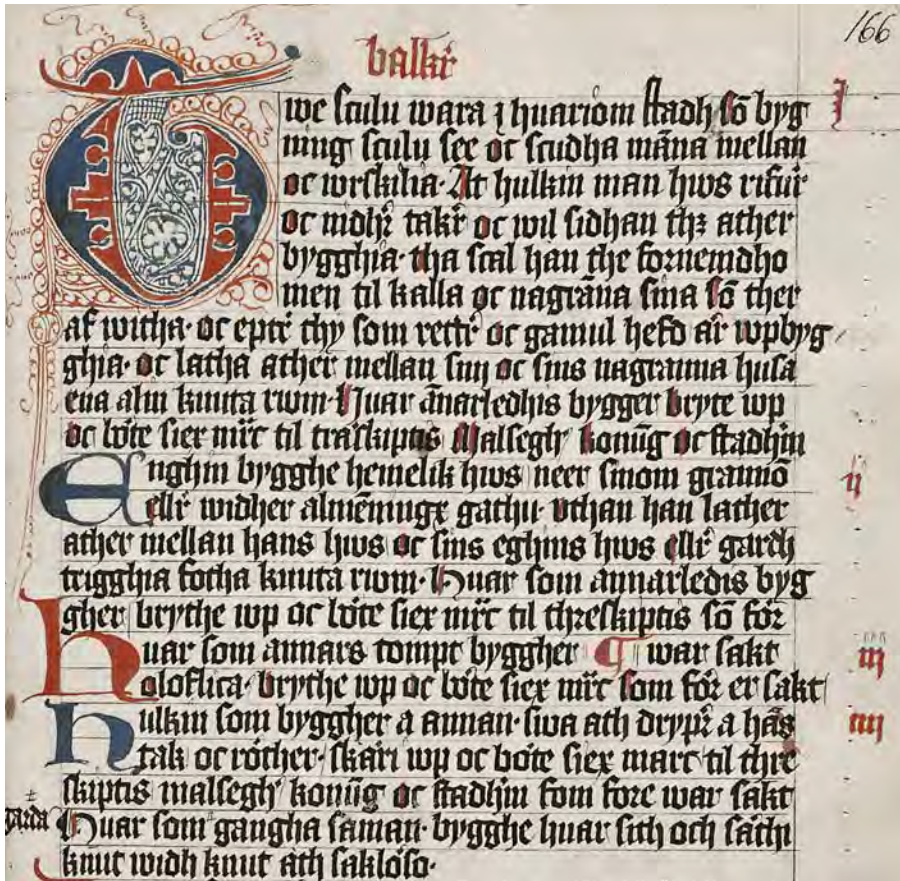 166
balkr̄
Twe sculu wara j huariom stadh sō byg
ning sculu see oc scudha māna mellan
oc wrskilia· At hulkin man hws rifuir
oc nidhr̄ takr̄ oc wil sidhan thꝫ ather
bygghia· tha scal han the fornemdho
men til kalla oc nagrāna sina sō ther
af witha· oc eptr̄ thy som rettr̄ oc gamul hefd är wpbyg
ghia· oc latha ather mellan sin oc sins nagranna husa
ena aln knuta rwm· Huar ānarledhis bygger bryte wp
oc böte siex mr̄c til träskiptis Malsegh' konūg oc stadhin
Enghin bygghe hemelik hws neer sinom grannō
ellr̄ widher almēnings gathu· vthan han lather
ather mellan hans hws oc sins eghins hws ellr̄ gardh
triggia fotha knuta rwm· Huar som annarledis byg
gher brythe wp oc böte siex mr̄c til threskiptis sō för
huar som annars tompt byggher ¶ war sakt
oloflica· brythe wp oc böte siex mr̄c som för er sakt
hulkin som byggher a annan· swa ath drypr̄ a hās
tak oc röther· skäri wp oc böte siex marc til thre
skiptis malsegh' konūg oc stadhin som fore war sakt
garda Huar som gangha saman· bygghe huar sith och säthi
knut widh knut ath saklöso·
j
ij
iij
iiij